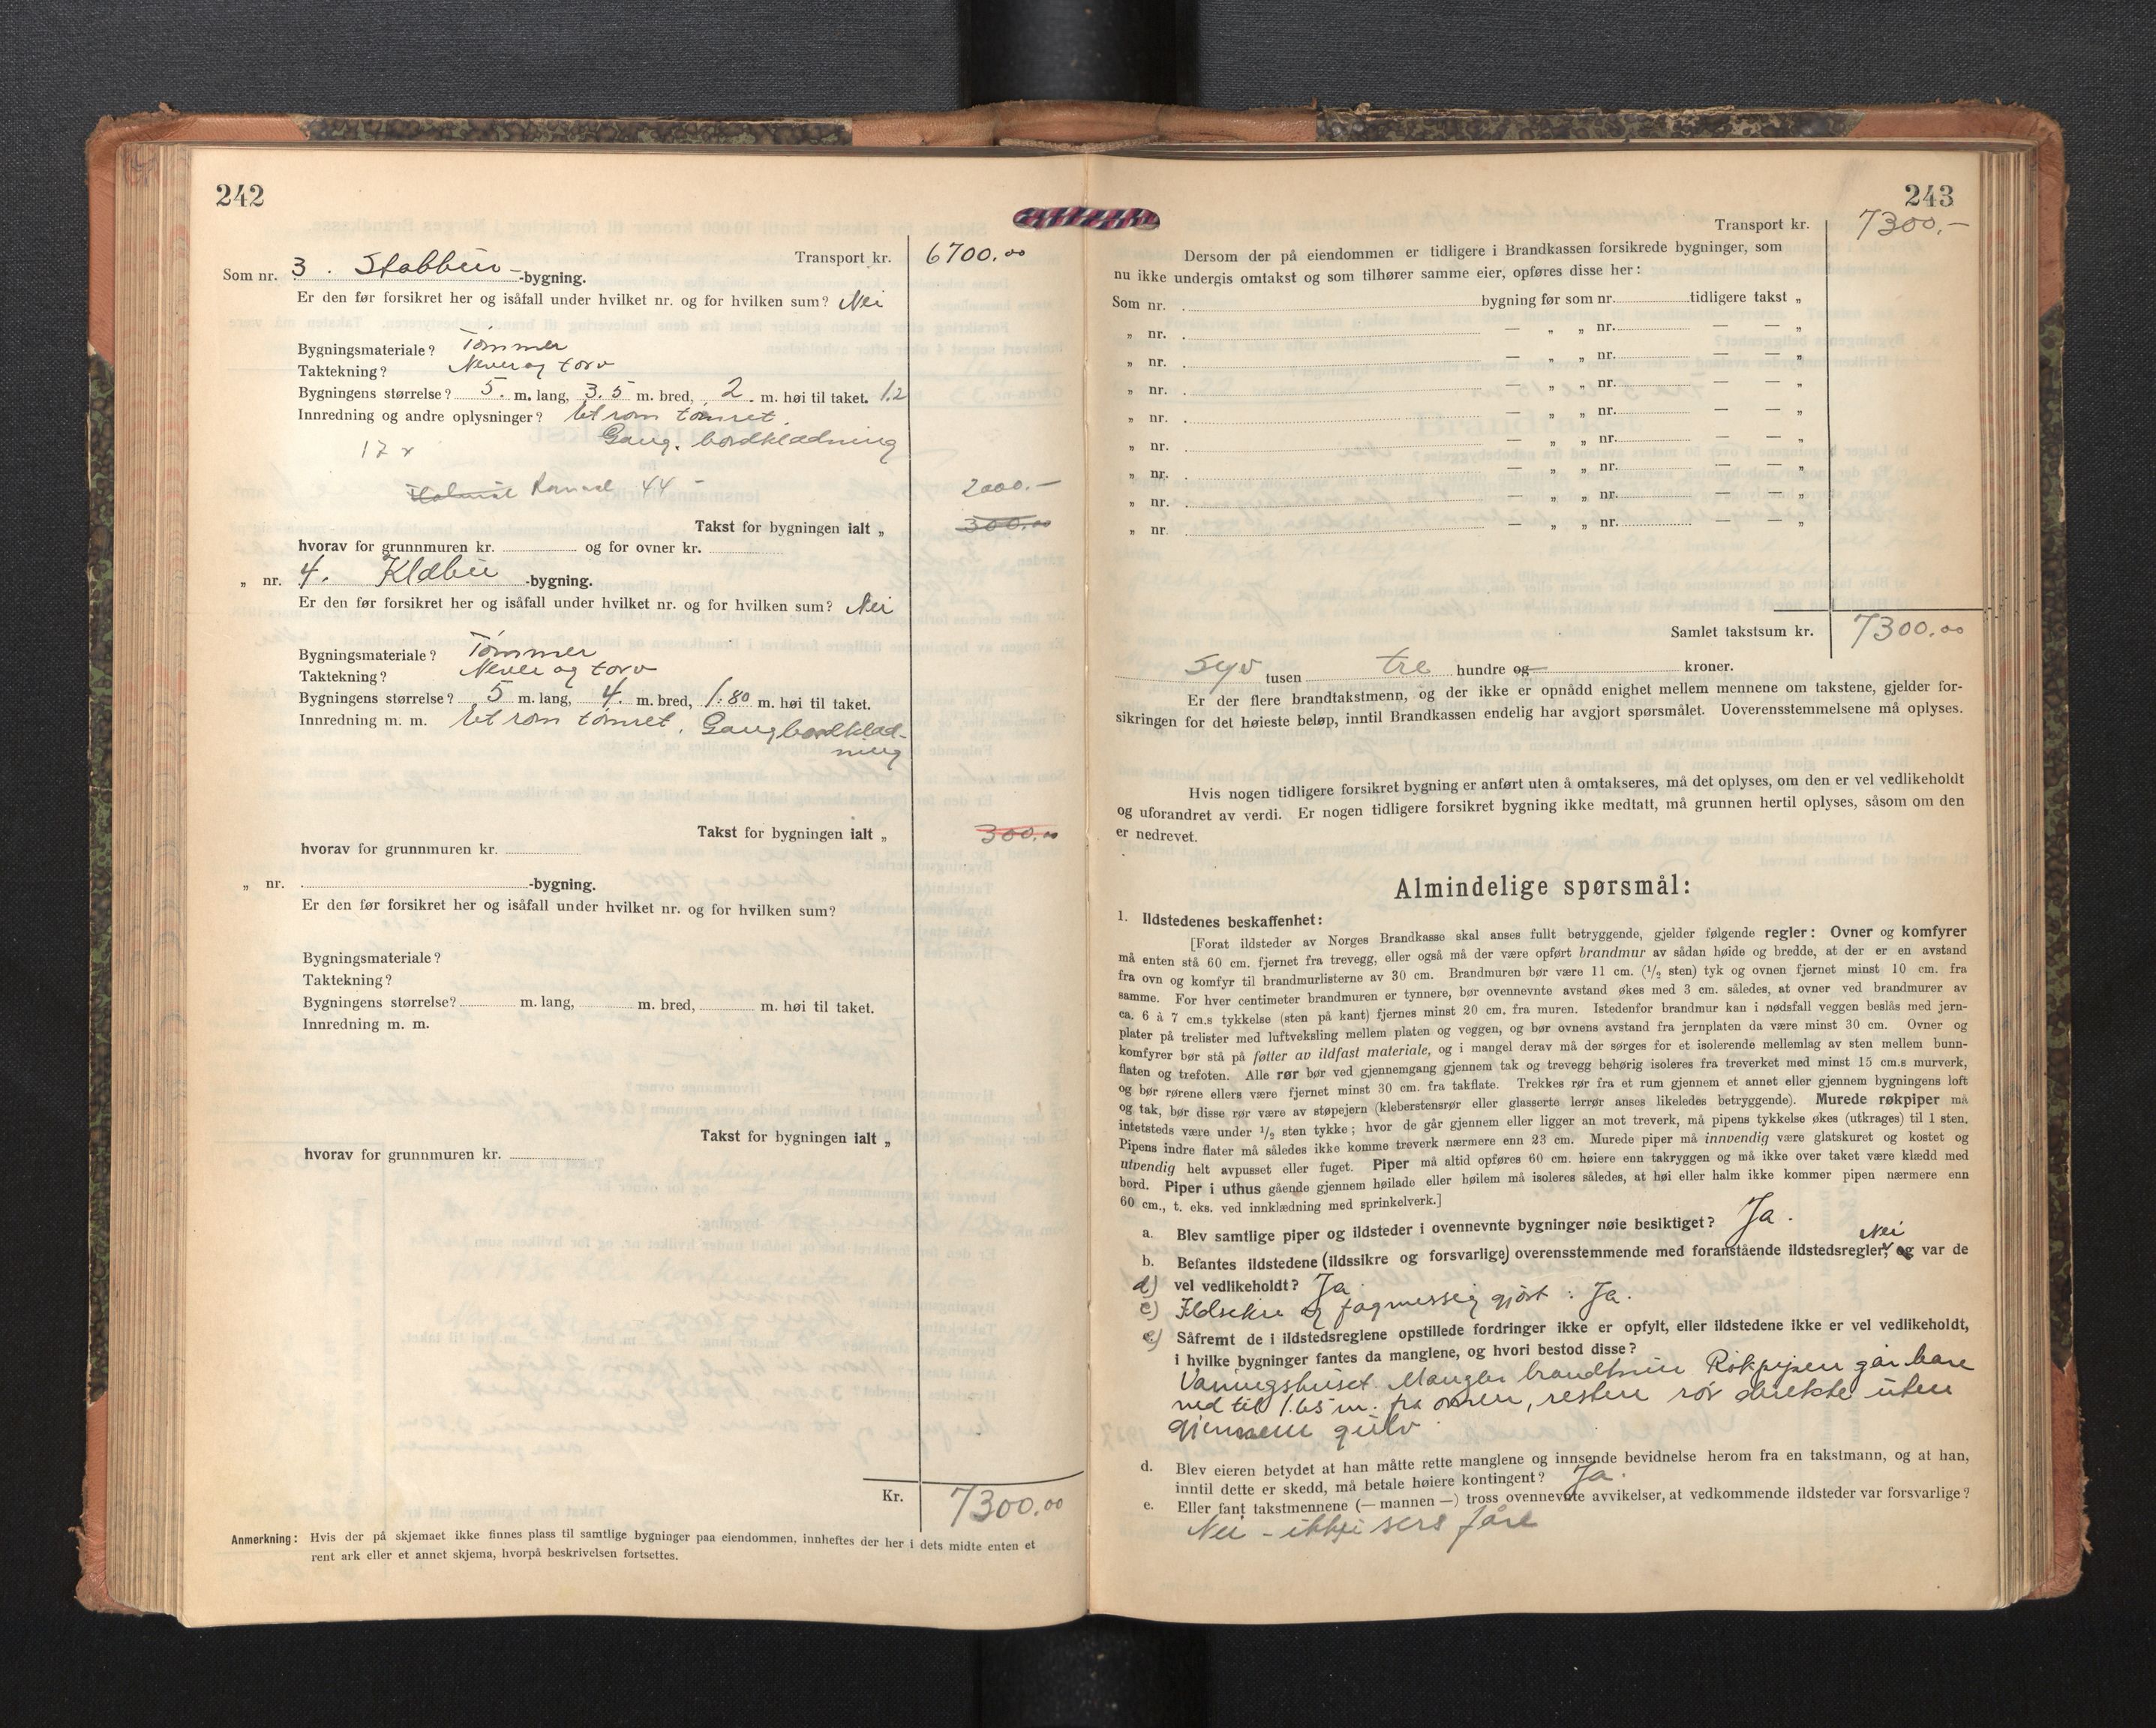 242
Transport kr. 6700.00
Som nr. 3. Stabbur -bygning.
Er den før forsikret her og isåfall under hvilket nr. og for hvilken sum? Nei
Bygningsmateriale? Tømmer
Taktekning? Never og torv
Bygningens størrelse? 5. m. lang, 3.5 m. bred, 2. m. høi til taket. 1.2
Innredning og andre oplysninger? Et rom tømret.
Gang. bordklædning
17 x
44 - 2000.-
Takst for bygningen ialt „ 300.00
hvorav for grunnmuren kr. og for ovner kr.
„ nr. 4. Klæbu -bygning.
Er den før forsikret her og isåfall under hvilket nr. og for hvilken sum? Nei
Bygningsmateriale? Tømmer
Taktekning? Never og torv
Bygningens størrelse? 5 m. lang, 4. m. bred, 1.80 m. høi til taket.
Innredning m. m. Et rom tømret. Gang bordklæd-
ning
Takst for bygningen ialt „ 300.00
hvorav for grunnmuren kr.
„ nr. -bygning.
Er den før forsikret her og isåfall under hvilket nr. og for hvilken sum?
Bygningsmateriale?
Taktekning?
Bygningens størrelse? m. lang, m. bred, m. høi til taket.
Innredning m. m.
Takst for bygningen ialt „
hvorav for grunnmuren kr.
Kr. 7300.00
Anmerkning: Hvis der på skjemaet ikke finnes plass til samtlige bygninger paa eiendommen, innheftes der her i dets midte enten et
rent ark eller et annet skjema, hvorpå beskrivelsen fortsettes.
243
Transport kr. 7300.-
Dersom der på eiendommen er tidligere i Brandkassen forsikrede bygninger, som
nu ikke undergis omtakst og som tilhører samme eier, opføres disse her:
Som nr. bygning før som nr. tidligere takst „
„ nr. — „ „ nr. — — „
„ nr. — „ „ nr. — — „
„ nr. — „ „ nr. — — „
„ nr. — „ „ nr. — — „
„ nr. — „ „ nr. — — „
„ nr. — „ „ nr. — — „
„ nr. — „ „ nr. — — „
„ nr. — „ „ nr. — — „
Samlet takstsum kr. 7300.00
Syv tusen tre hundre og kroner.
Er der flere brandtakstmenn, og der ikke er opnådd enighet mellem mennene om takstene, gjelder for-
sikringen for det høieste beløp, inntil Brandkassen endelig har avgjort spørsmålet. Uoverensstemmelsene må oplyses.
Hvis nogen tidligere forsikret bygning er anført uten å omtakseres, må det oplyses, om den er vel vedlikeholdt
og uforandret av verdi. Er nogen tidligere forsikret bygning ikke medtatt, må grunnen hertil oplyses, såsom om den
er nedrevet.
Almindelige spørsmål:
1. Ildstedenes beskaffenhet:
[Forat ildsteder av Norges Brandkasse skal anses fullt betryggende, gjelder følgende regler: Ovner og komfyrer
må enten stå 60 cm. fjernet fra trevegg, eller også må der være opført brandmur av sådan høide og bredde, at der er en avstand
fra ovn og komfyr til brandmurlisterne av 30 cm. Brandmuren bør være 11 cm. (1/2 sten) tyk og ovnen fjernet minst 10 cm. fra
samme. For hver centimeter brandmuren er tynnere, bør ovennevnte avstand økes med 3 cm. således, at ovner ved brandmurer av
ca. 6 à 7 cm.s tykkelse (sten på kant) fjernes minst 20 cm. fra muren. Istedenfor brandmur kan i nødsfall veggen beslås med jern-
plater på trelister med luftveksling mellem platen og veggen, og bør ovnens avstand fra jernplaten da være minst 30 cm. Ovner og
komfyrer bør stå på føtter av ildfast materiale, og i mangel derav må der sørges for et isolerende mellemlag av sten mellem bunn-
flaten og trefoten. Alle rør bør ved gjennemgang gjennem tak og trevegg behørig isoleres fra treverket med minst 15 cm.s murverk,
og bør rørene ellers være fjernet minst 30 cm. fra takflate. Trekkes rør fra et rum gjennem et annet eller gjennem bygningens loft
og tak, bør disse rør være av støpejern (kleberstensrør eller glasserte lerrør anses likeledes betryggende). Murede røkpiper må
intetsteds være under 1/2 sten tykke; hvor de går gjennem eller ligger an mot treverk, må pipens tykkelse økes (utkrages) til 1 sten.
Pipens indre flater må således ikke komme treverk nærmere enn 23 cm. Murede piper må innvendig være glatskuret og kostet og
utvendig helt avpusset eller fuget. Piper må altid opføres 60 cm. høiere enn takryggen og må ikke over taket være klædd med
bord. Piper i uthus gående gjennem høilade eller høilem må isoleres således, at høi eller halm ikke kommer pipen nærmere enn
60 cm., t. eks. ved innklædning med sprinkelverk.]
a. Blev samtlige piper og ildsteder i ovennevnte bygninger nøie besiktiget? Ja.
Nei
b. Befantes ildstedene (ildssikre og forsvarlige) overensstemmende med foranstående ildstedsregler, og var de
d) vel vedlikeholdt? Ja
c) Ildsikre og fagmessig gjort: Ja.
e) Såfremt de i ildstedsreglene opstillede fordringer ikke er opfylt, eller ildstedene ikke er vel vedlikeholdt,
i hvilke bygninger fantes da manglene, og hvori bestod disse?
Våningshuset. Mangler brandmur Rökpipen går bare
ned til 1.65 m. fra ovnen, resten rör direkte uten
gjennem gulv
d. Blev eieren betydet at han måtte rette manglene og innsende bevidnelse herom fra en takstmann, og at han,
inntil dette er skedd, må betale høiere kontingent? Ja.
e. Eller fant takstmennene (— mannen —) tross ovennevnte avvikelser, at vedkommende ildsteder var forsvarlige?
Nei - ikkje sers fåre